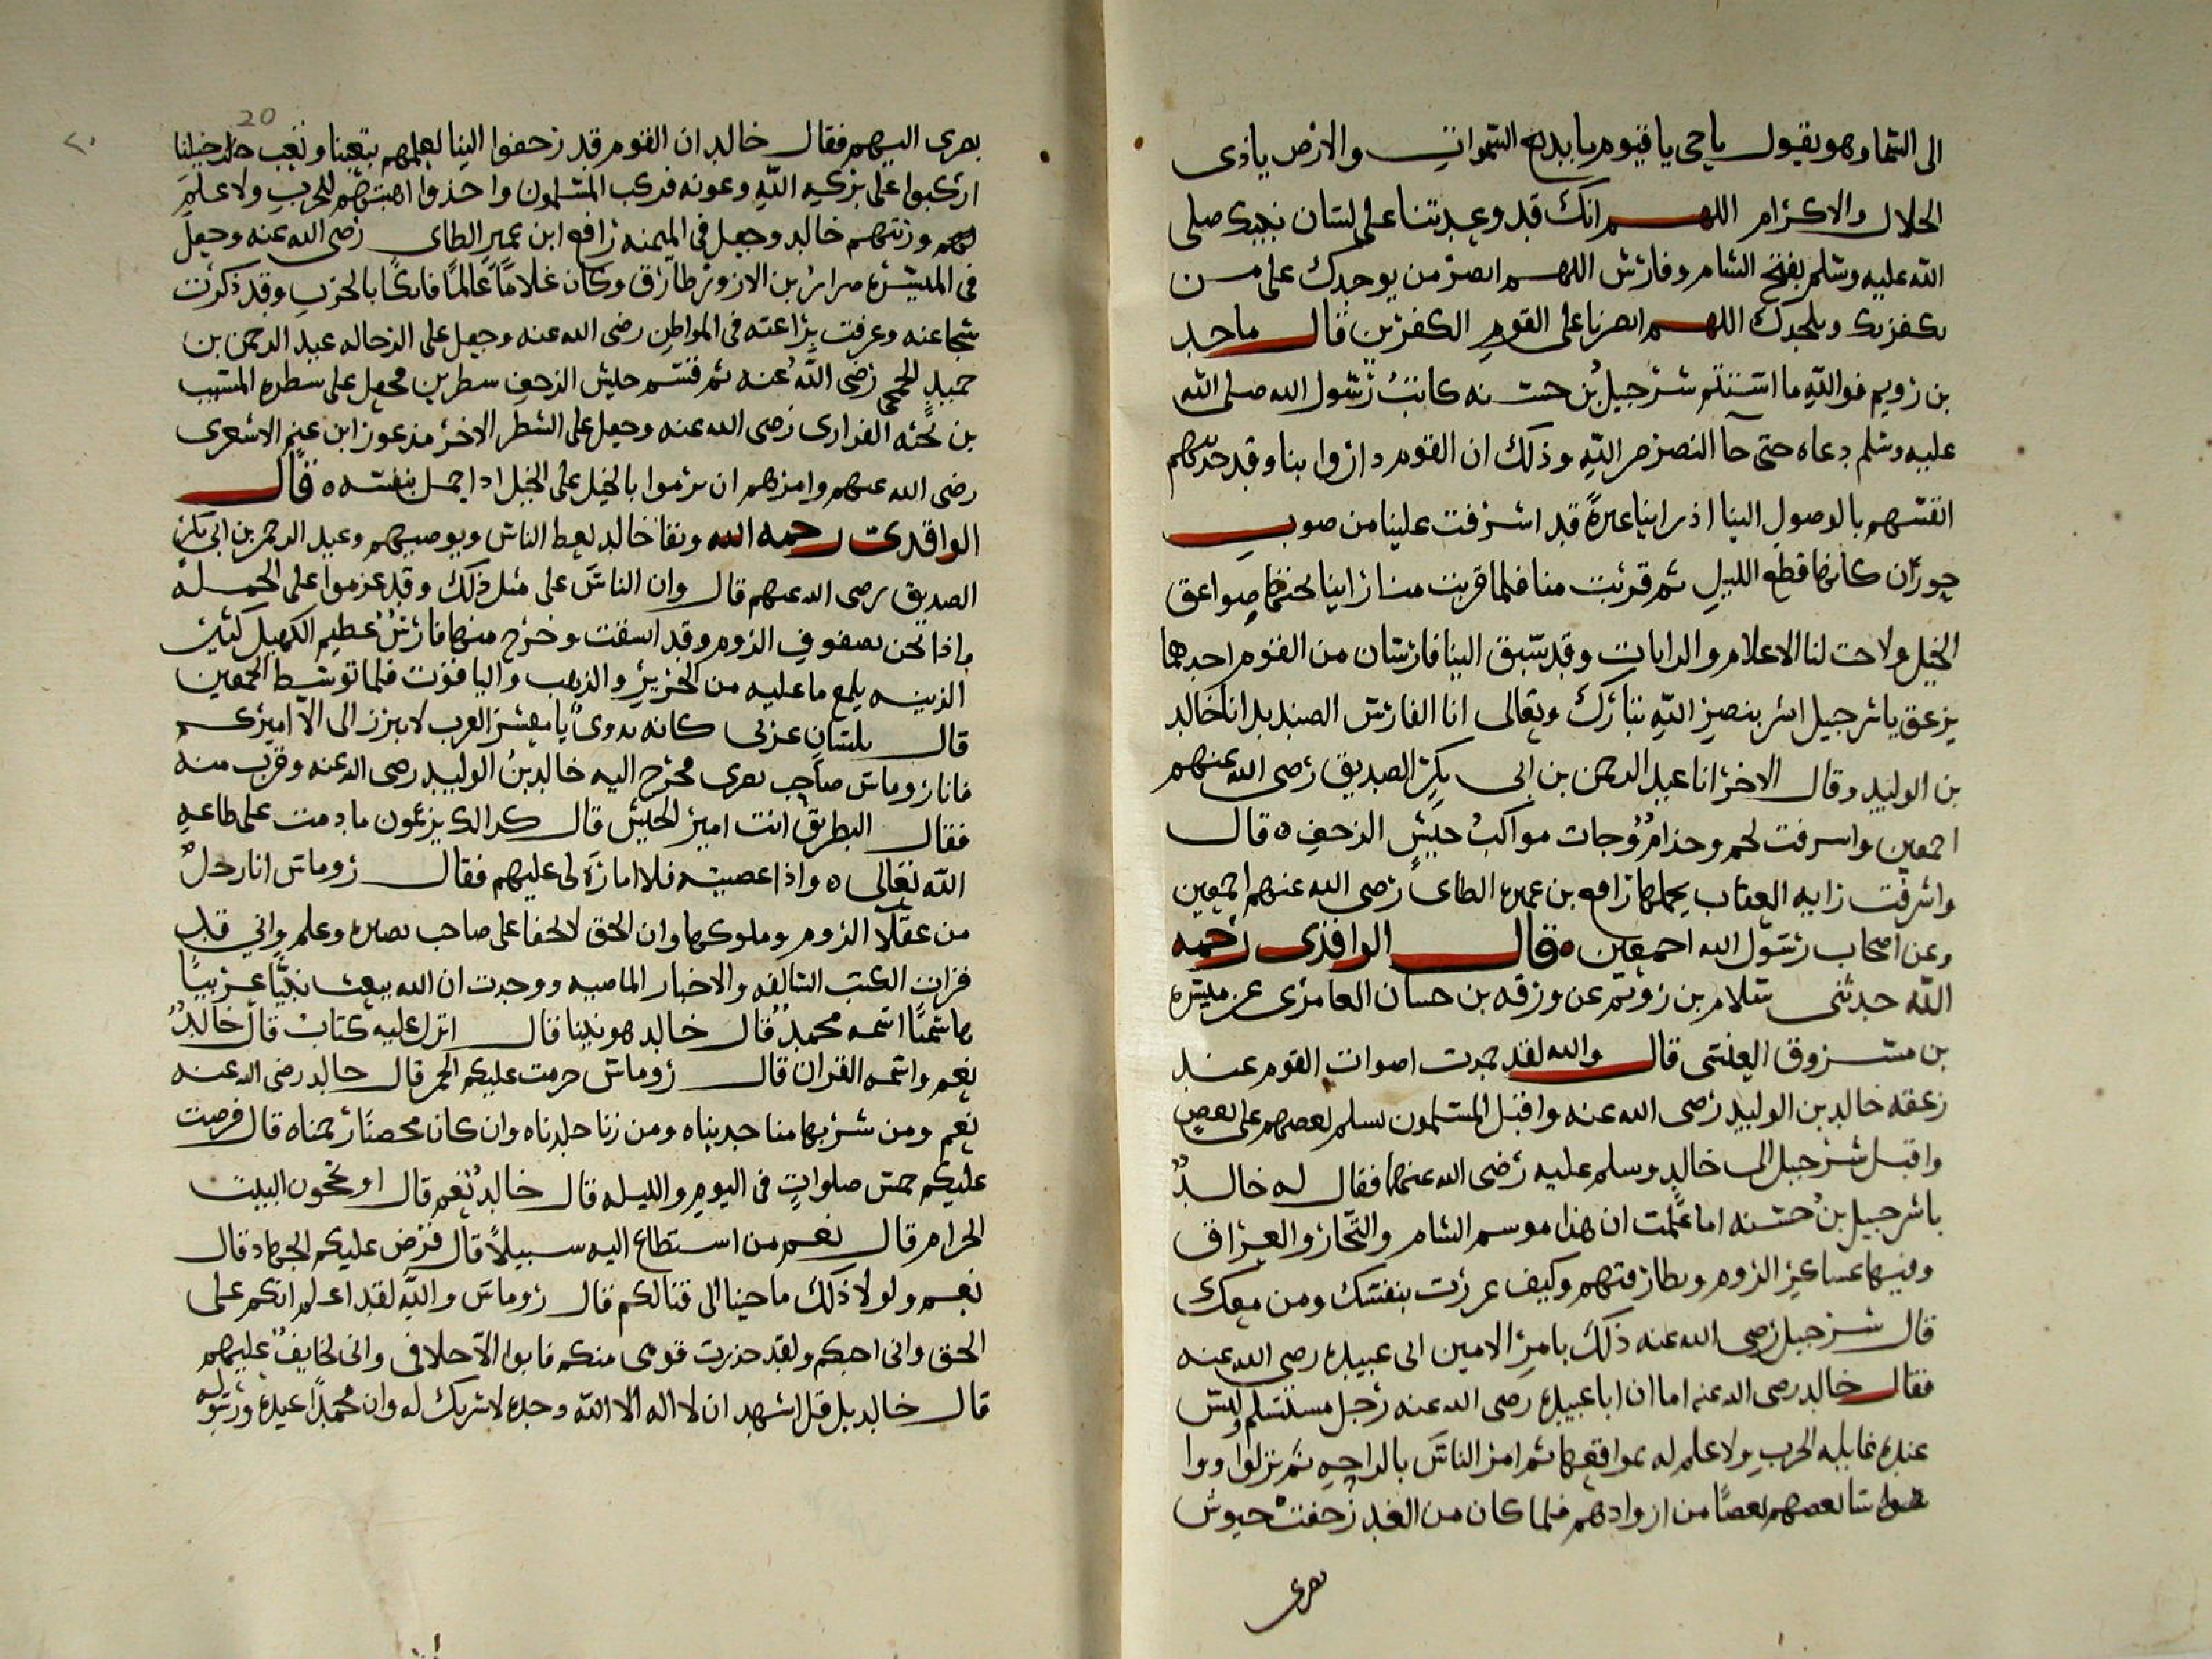 الى السما وهو يقول يا حى يا قيوم يا بديع السموات والارض ياذى
الجلال والاكرام اللهم انك قد وعدتنا على لسان نبيك صلى
الله عليه وسلم بفتح الشام وفارس اللهم انصر من يوحدك على من
يكفر بك ويلحدك اللهم انصرنا على القوم الكفرين قال ماجد
بن رويم فوالله ما استتم شرحبيل بن حسنه كاتب رسول الله صلى الله
عليه وسلم دعاه حتى جآ النصر من الله وذلك ان القوم داروا بنا وقد حدثهم
انفسهم بالوصول الينا اذ راينا غبرة قد اشرفت علينا من صوب
حوران كانها قطع الليل ثم قربت منا فلما قربت منا راينا تحتها صواعق
الخيل ولاحت لنا الاعلام والرايات وقد سبق الينا فارسان من القوم احدهما
يزعق يا شرحبيل ابشر بنصر الله تبارك وتعالى انا الفارس الصنديد انا خالد
بن الوليد وقال الاخر انا عبد الرحمن بن ابى بكر الصديق رضى الله عنهم
اجمعين واشرفت لخم وجذام وجات مواكب جيش الزحف ه قال
واشرفت رايه العقاب يحملها رافع بن عميره الطاى رضى الله عنهم اجمعين
وعن اصحاب رسول الله اجمعين ه قال الواقدى رحمه
الله حدثنى سلام بن رويم عن ورقه بن حسان العامرى عن ميسره
بن مسروق العبسى قال والله لقد خمدت اصوات القوم عند
زعقه خالد بن الوليد رضى الله عنه واقبل المسلمون يسلم بعضهم على بعض
واقبل شرحبيل الى خالد وسلم عليه رضى الله عنهما فقال له خالد
ياشرحبيل بن حسنه اما علمت ان هذا موسم الشام والحجاز والعراق
وفيها عساكر الروم وبطارقتهم وكيف غررت بنفسك ومن معك
قال شرحبيل رضى الله عنه ذلك بامر الامين ابى عبيده رضى الله عنه
فقال خالد رضى الله عنه اما ان ابا عبيده رضى الله عنه رجل مستسلم وليس
عنده غايله الحرب ولا علم له بمواقعها ثم امر الناس بالراحه ثم نزلوا ووا
بعضهم بعضا من ازوادهم فلما كان من الغد زحفت جيوش
بصرى
20
٢٠
بصرى اليهم فقال خالد ان القوم قد زحفوا الينا لعلمهم بتعبنا وتعب خيلنا
اركبوا على بركه الله وعونه فركب المسلمون واخذوا اهبتهم للحرب ولا علم
لهم ورتبهم خالد وجعل فى الميمنه رافع ابن عمير الطاى رضى الله عنه وجعل
فى الميسره ضرار بن الازور بن طارق وكان غلامًا عالمًا فاتكًا بالحرب وقد ذكرت
شجاعته وعرفت براعته فى المواطن رضى الله عنه وجعل على الرجاله عبد الرحمن بن
حميد الجمحى رضى الله عنه ثم قسم جيش الزحف سطرين فجعل على سطره المسيب
بن نجبه الفزارى رضى الله عنه وجعل على الشطر الاخر مذعور ابن غنم الاشعرى
رضى الله عنهم وامرهم ان يرموا بالخيل على الخيل اذا حمل بنفسه ه قال
الواقدى رحمه الله وبقا خالد يعظ الناس ويوصيهم وعبد الرحمن بن ابى بكر
الصديق رضى الله عنهم قال وان الناس على مثل ذلك وقد عزموا على الحمله
واذا نحن بصفوف الروم وقد انشقت وخرج منها فارس عظيم الكهيل كثير
الزينه يلمع ما عليه من الحرير والذهب واليافوت فلما توسط الجمعين
قال بلسان عربى كانه بدوى يا معشر العرب لا يبرز الى الا اميركم
فانا روماس صاحب بصرى فخرج اليه خالد بن الوليد رضى الله عنه وقرب منه
فقال البطريق انت امير الجيش قال كذالك يزعمون ما دمت على طاعه
الله تعالى ه واذا عصيته فلا امارة لى عليهم فقال روماس انا رجل
من عقلآ الروم وملوكها وان الحق لا يخفا على صاحب بصيره وعلم وانى قد
قرات الكتب السالفه والاخبار الماضيه ووجدت ان الله يبعث نبيًا عربيًا
هاشميًا اسمه محمد قال خالد هو نبينا قال انزل عليه كتاب قال خالد
نعم واسمه القران قال روماس حرمت عليكم الخمر قال خالد رضى الله عنه
نعم ومن شربها منا حديناه ومن زنا جلدناه وان كان محصنًا رجمناه قال فرضت
عليكم خمس صلوات فى اليوم والليله قال خالد نعم قال اوتحجون البيت
الحرام قال نعم من استطاع اليه سبيلاً قال فرض عليكم الجهاد قال
نعم ولولا ذلك ما جينا الى قتالكم قال روماس والله لقد اعلم انكم على
الحق وانى احبكم ولقد حذرت قومى منكم فابوا الا خلافى وانى لخايف عليهم
قال خالد بل قل اشهد ان لا اله الا الله وحده لا شريك له وان محمدًا عبده ورسوله